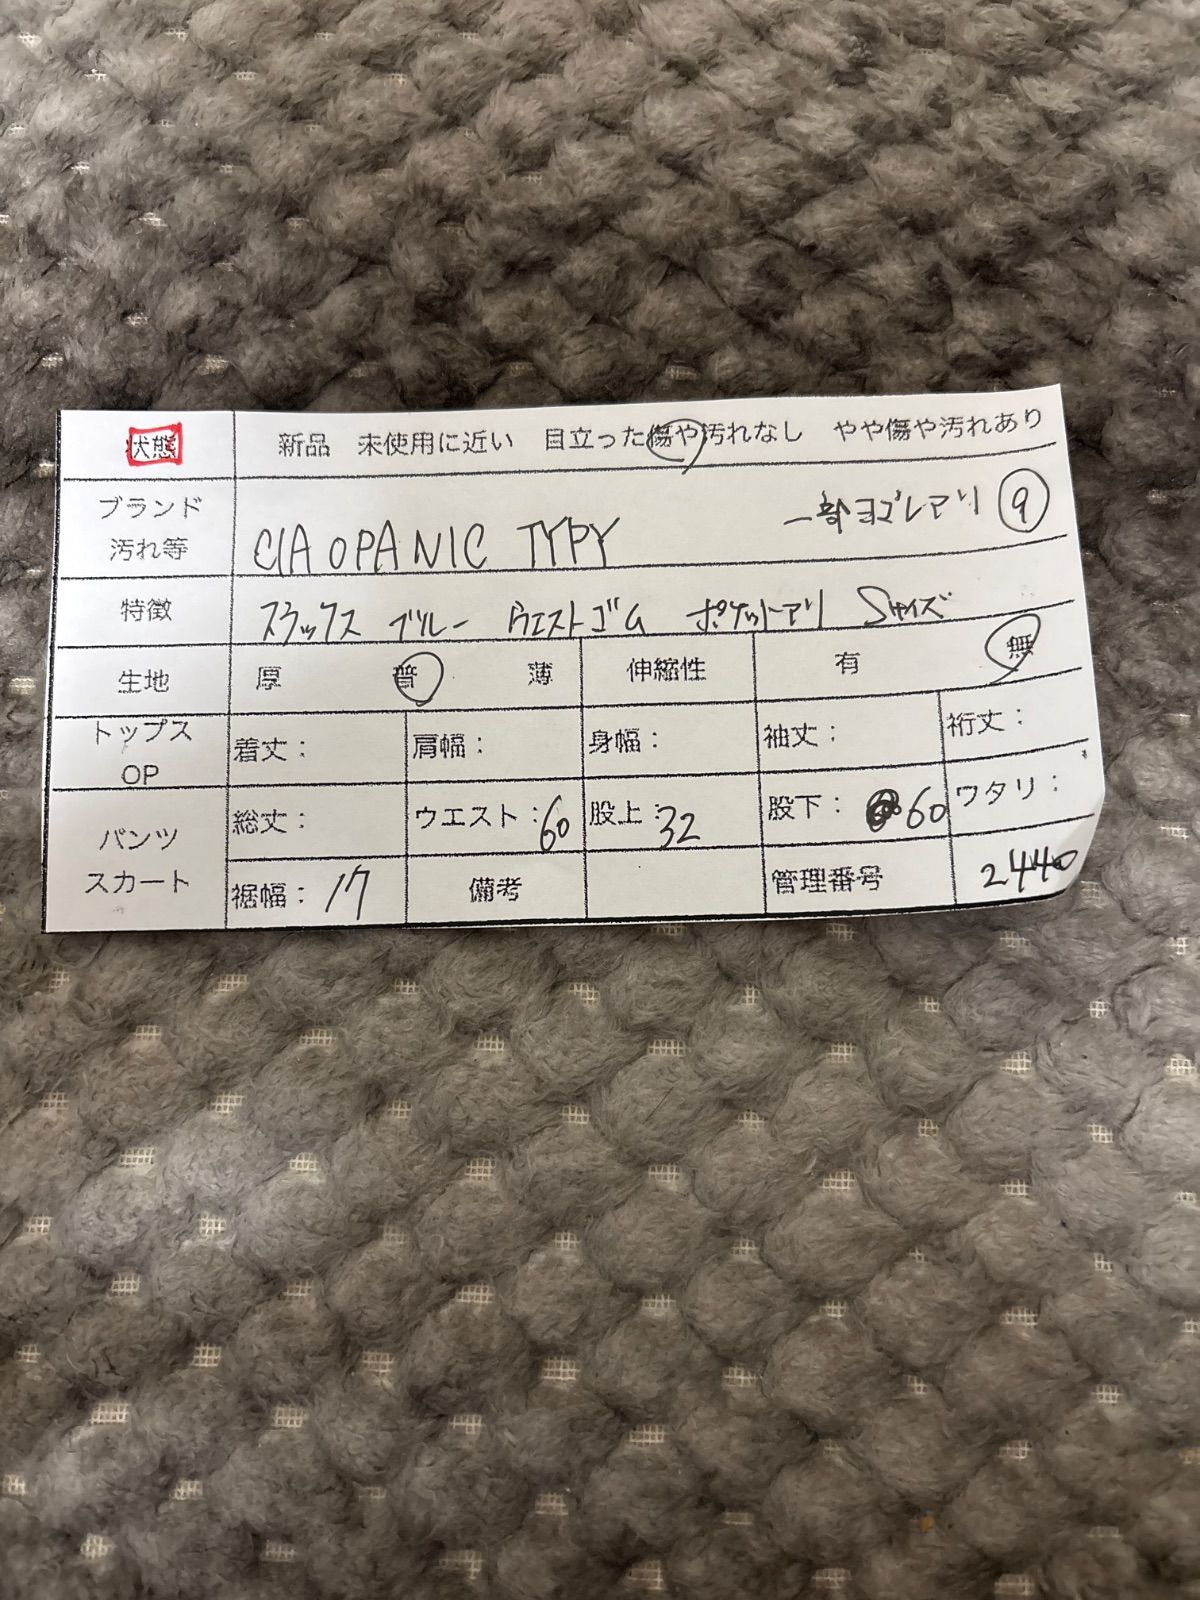 状態 新品 未使用に近い 目立った傷や汚れなし やや傷や汚れあり
ブランド 汚れ等 CIAOPANIC TYPY 一部ヨゴレアリ ⑨
特徴 スラックス ブルー ウエストゴム ポケットアリ Sサイズ
生地 厚 普 薄 伸縮性 有 無
トップス OP 着丈： 肩幅： 身幅： 袖丈： 裄丈：
パンツ スカート 総丈： ウエスト：60 股上：32 股下：60 ワタリ：
裾幅：17 備考 管理番号 2440